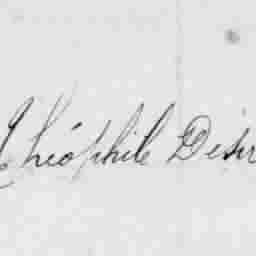 Théophile Desir